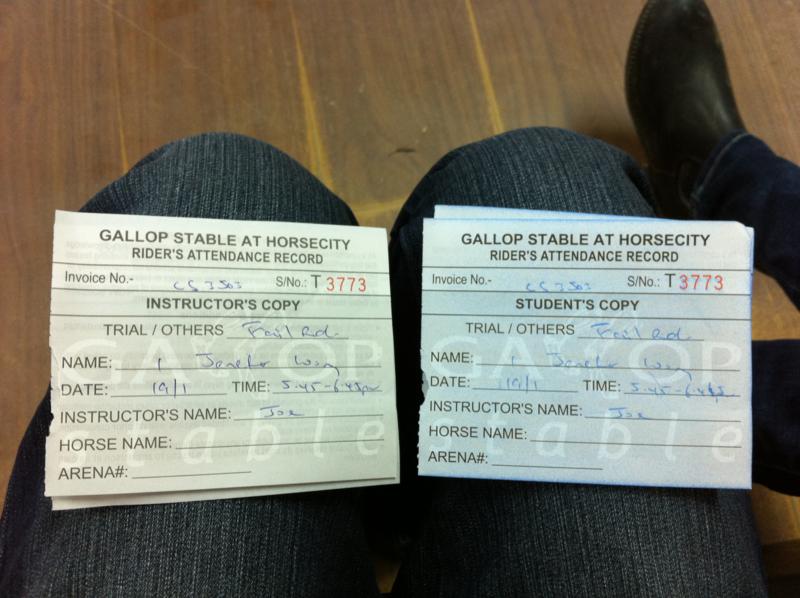 GALLOP STABLE AT HORSECITY
RIDER'S ATTENDANCE RECORD
Invoice No.- CS 3503 S/No.: T 3773
INSTRUCTOR'S COPY
TRIAL / OTHERS
NAME: 1
DATE: 19/1 TIME: 5.45-6.45pm
INSTRUCTOR'S NAME: Joe
HORSE NAME:
ARENA#:
GALLOP
stable
GALLOP STABLE AT HORSECITY
RIDER'S ATTENDANCE RECORD
Invoice No.- CS 3503 S/No.: T 3773
STUDENT'S COPY
TRIAL / OTHERS
NAME: 1
DATE: 19/1 TIME: 5.45-6.45pm
INSTRUCTOR'S NAME: Joe
HORSE NAME:
ARENA#:
GALLOP
stable